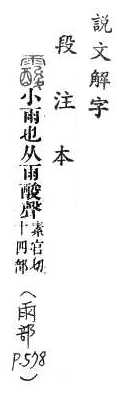 說文解字
段注本
䨘小雨也从雨酸聲素官切
十四部
（雨部
P.578）